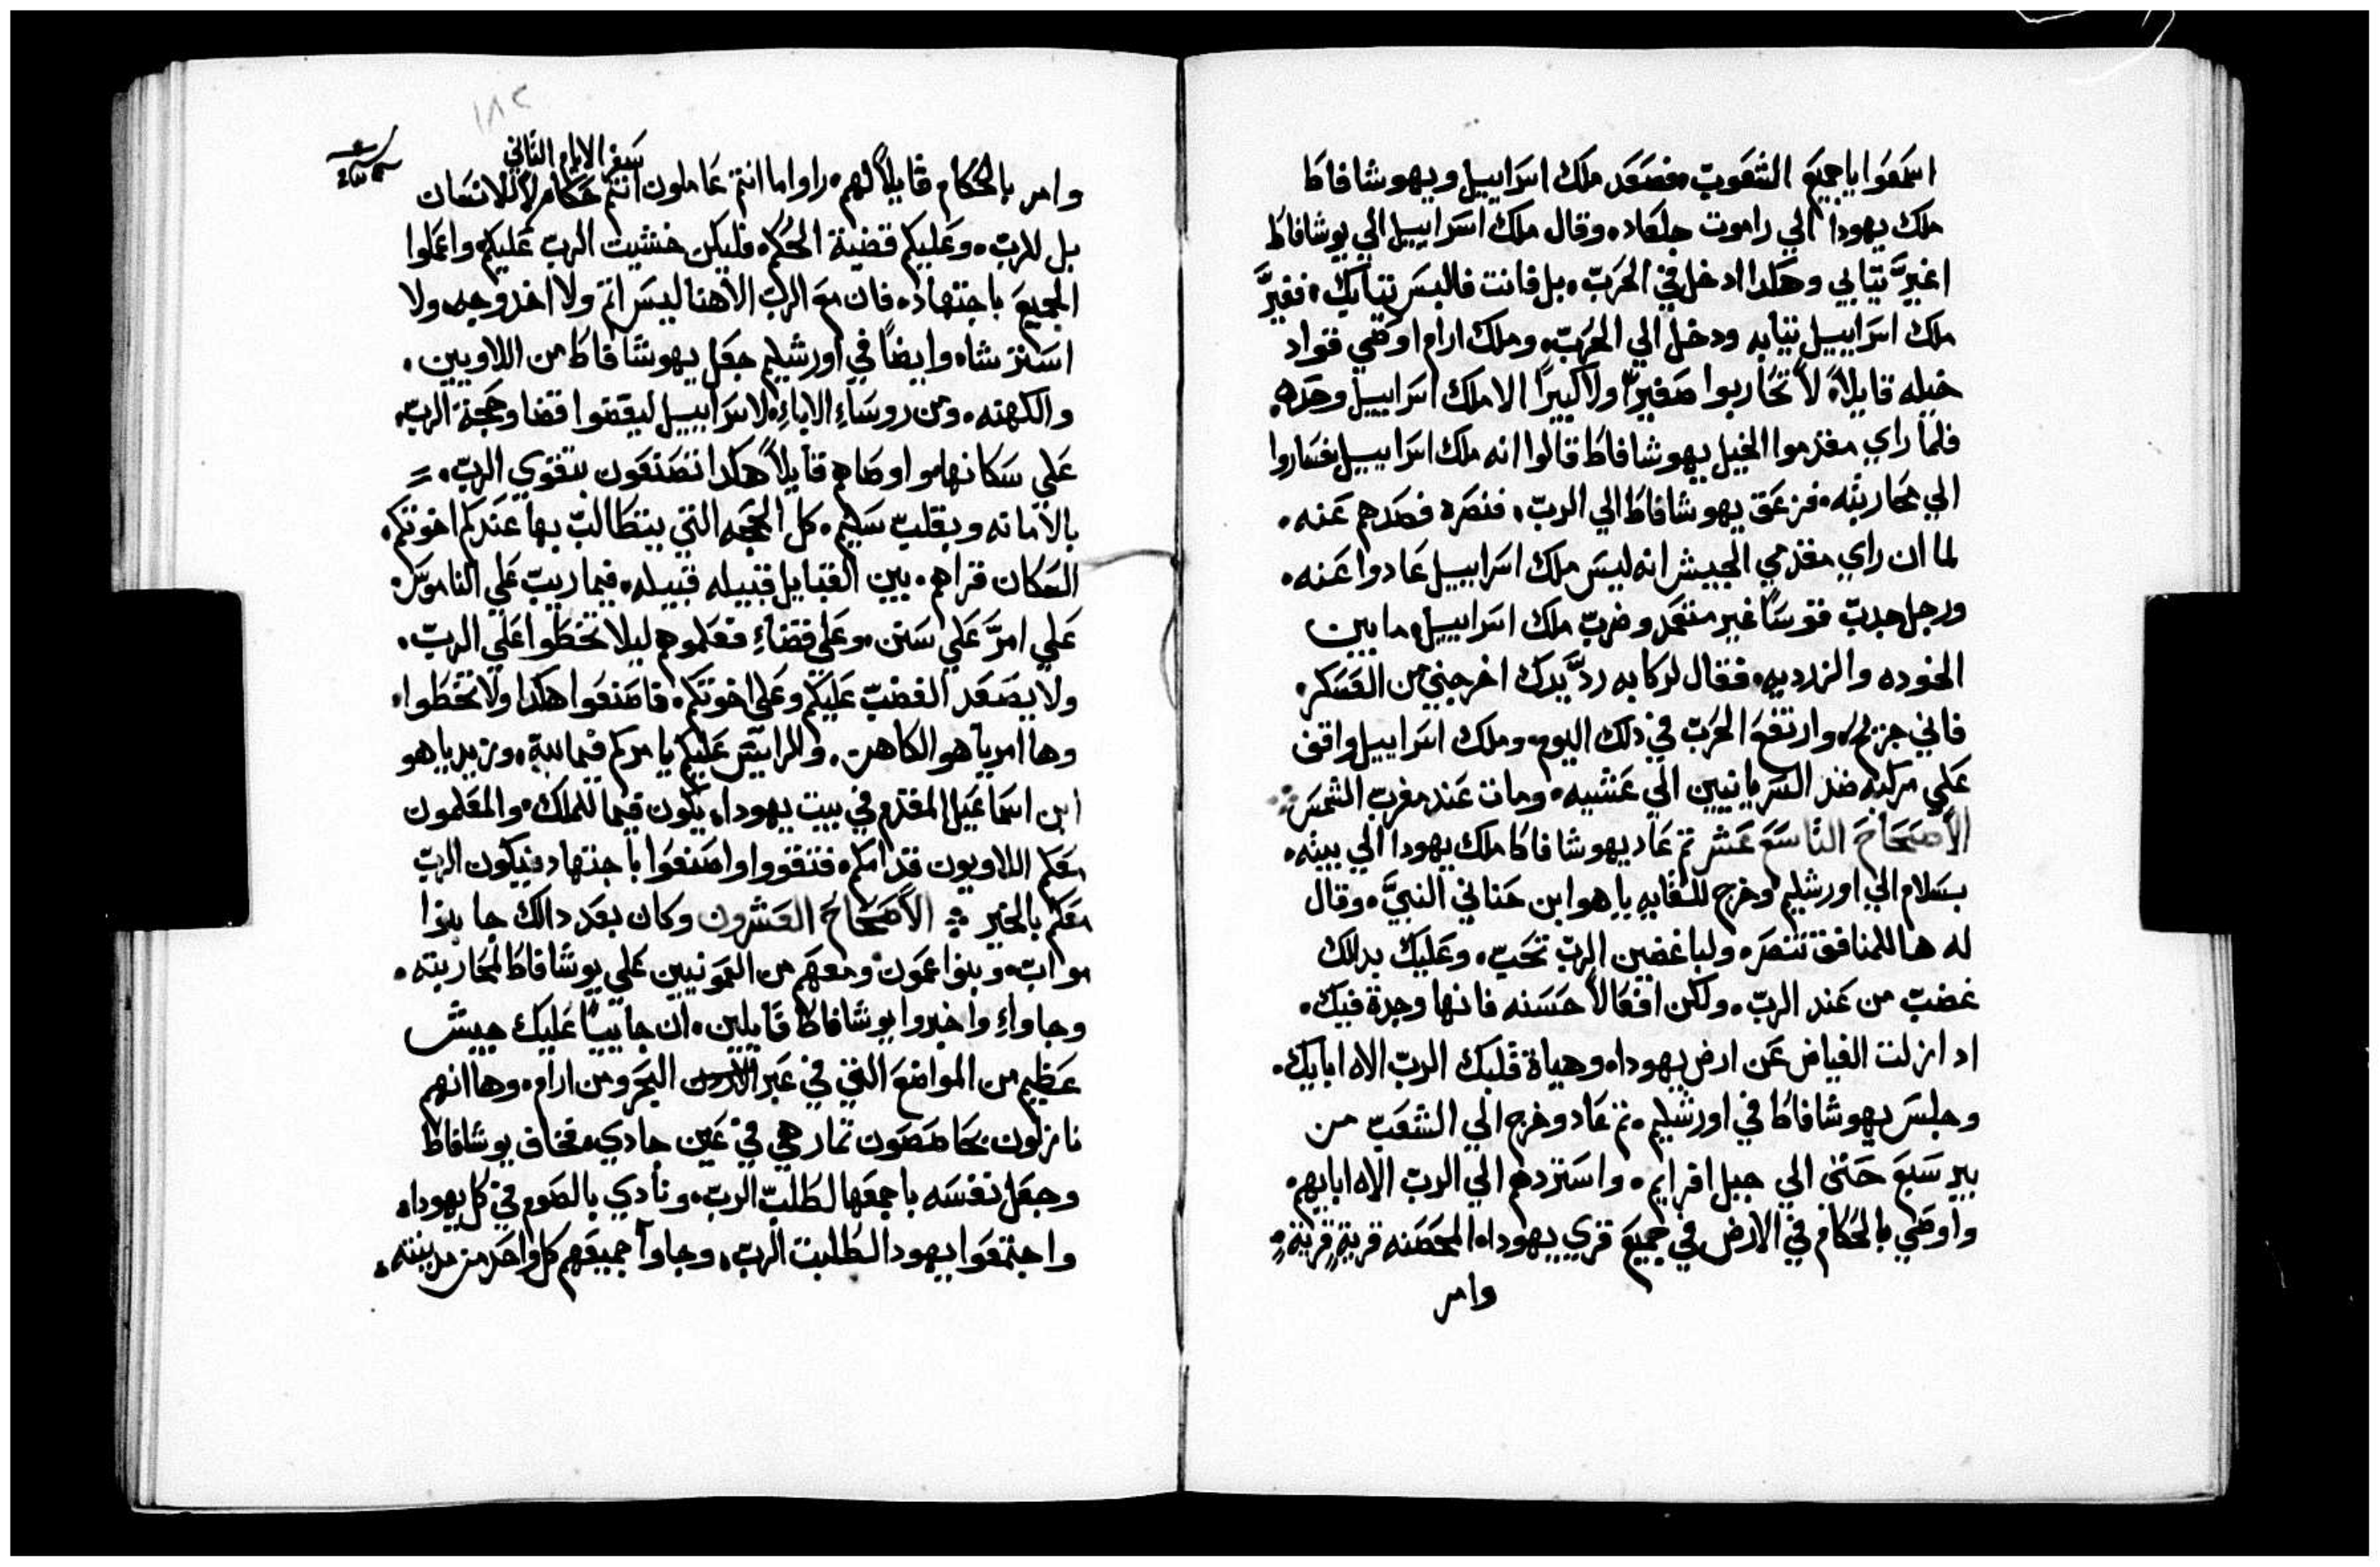 اسمعوا يا جميع الشعوب. فصعد ملك اسراييل ويهوشافاط
ملك يهودا الي راموت جلعاد. وقال ملك اسراييل الي يوشافاط
اغيرَّ تيابي وهكدا ادخل في الحرب. بل فانت فالبس تيابك. فغيرَّ
ملك اسراييل تيابه ودخل الي الحرب. وملك ارام اوصي قواد
خيله قايلاً. لا تحاربوا صغيرًا ولا كبيرًا الا ملك اسراييل وحده.
فلما راي مقدموا الخيل يهوشافاط قالوا انه ملك اسراييل فساروا
الي محاربته. فزعق يهوشافاط الي الرب. فنصره فصدهم عنه.
لما ان راي مقدمي الجييش انه ليس ملك اسراييل عادوا عنه.
ورجل جدب قوسًا غير متعمد وضرب ملك اسراييل. ما بين
الخوده والزرديه. فقال لركابه ردَّ يدك اخرجني من العسكر.
فاني جزيح. وارتفع الحرب في دلك اليوم. وملك اسراييل واقف
علي مركبه ضد السريانيين الي عشيه. ومات عند مغرب الشمس
الأصحاح التاسع عشر تم عاد يهوشافاط ملك يهودا الي بيته.
بسلام الي اورشليم وخرج للقايه ياهو ابن حناني النبيَّ. وقال
له ها للمنافق تنصر. ولباغضين الرب تحب. وعليك بدالك
غضب من عند الرب. ولكن افعالاً حسنه فانها وجدة فيك.
اد ازلت الغياض عن ارض يهودا. وهياة قلبك الرب الاه ابايك.
وجلس يهوشافاط في اورشليم. تم عاد وخرج الي الشعب من
بير سبع حتي الي جبل افرايم. واستردهم الي الرب الاه ابايهم.
واوصي بالحكام في الارض في جميع قري يهودا. المحصنه قرية قرية.
وامر
١٨٢
سفر الايام الثاني
وامر بالحكام قايلاً لهم. راوا ما انتم عاملون انتم حكام لا للانسان
بل للرب. وعليكم قضية الحكم. فليكن خشيت الرب عليكم واعملوا
الجميع باجتهاد. فان مع الرب الاهنا ليس اتم ولا اخد وجه ولا
استرشاه وايضًا في اورشليم جعل يهوشافاط من اللاويين.
والكهنه. ومن روساءِ الاباءِ. لاسراييل ليقضوا قضا وحجة الرب.
علي سكانها. واوصاهم قايلاً هكدا تصنعون بتقوي الرب. =
بالأمانه وبقلب سليم. كل الحجه التي يتطالب بها عندكم اخوتكم.
السكان قراهم. بين القبايل قبيله قبيله. فيما ريب علي الناموس.
علي امرَّ علي سنن. وعلي قضاءِ فعلموهم ليلا تخطوا علي الرب.
ولا يصعد الغضب عليكم وعلي اخوتكم. فاصنعوا هكدا ولا تخطوا.
وها امرياهو الكاهن. والراييس عليكم يامركم فيما لله. وزيرياهو
ابن اسماعيل المقدم في بيت يهودا. يكون فيما للملك. والمعلمون
معكم اللاويون قدامكم. فتقووا واصنعوا باجتهاد فيكون الرب
معكم بالخير الأصحاح العشرون وكان بعد دالك جا بنوا
مواب. وبنوا عمون ومعهم من العمونيين علي يوشافاط لمحاربته.
وجاواءِ واخبروا يوشافاط قايلين. ان جاييًا عليك جييش
عظيم من المواضع التي في عبر البحر ومن ارام. وها انهم
نازلون بحاصصون تمار هي في عين جادي. فخاف يوشافاط
وجعل نفسه باجمعها لطلب الرب. ونادي بالصوم في كل يهودا.
واجتمعوا يهودا لطلبت الرب. وجاوا جميعهم كل واحد من مدينته.